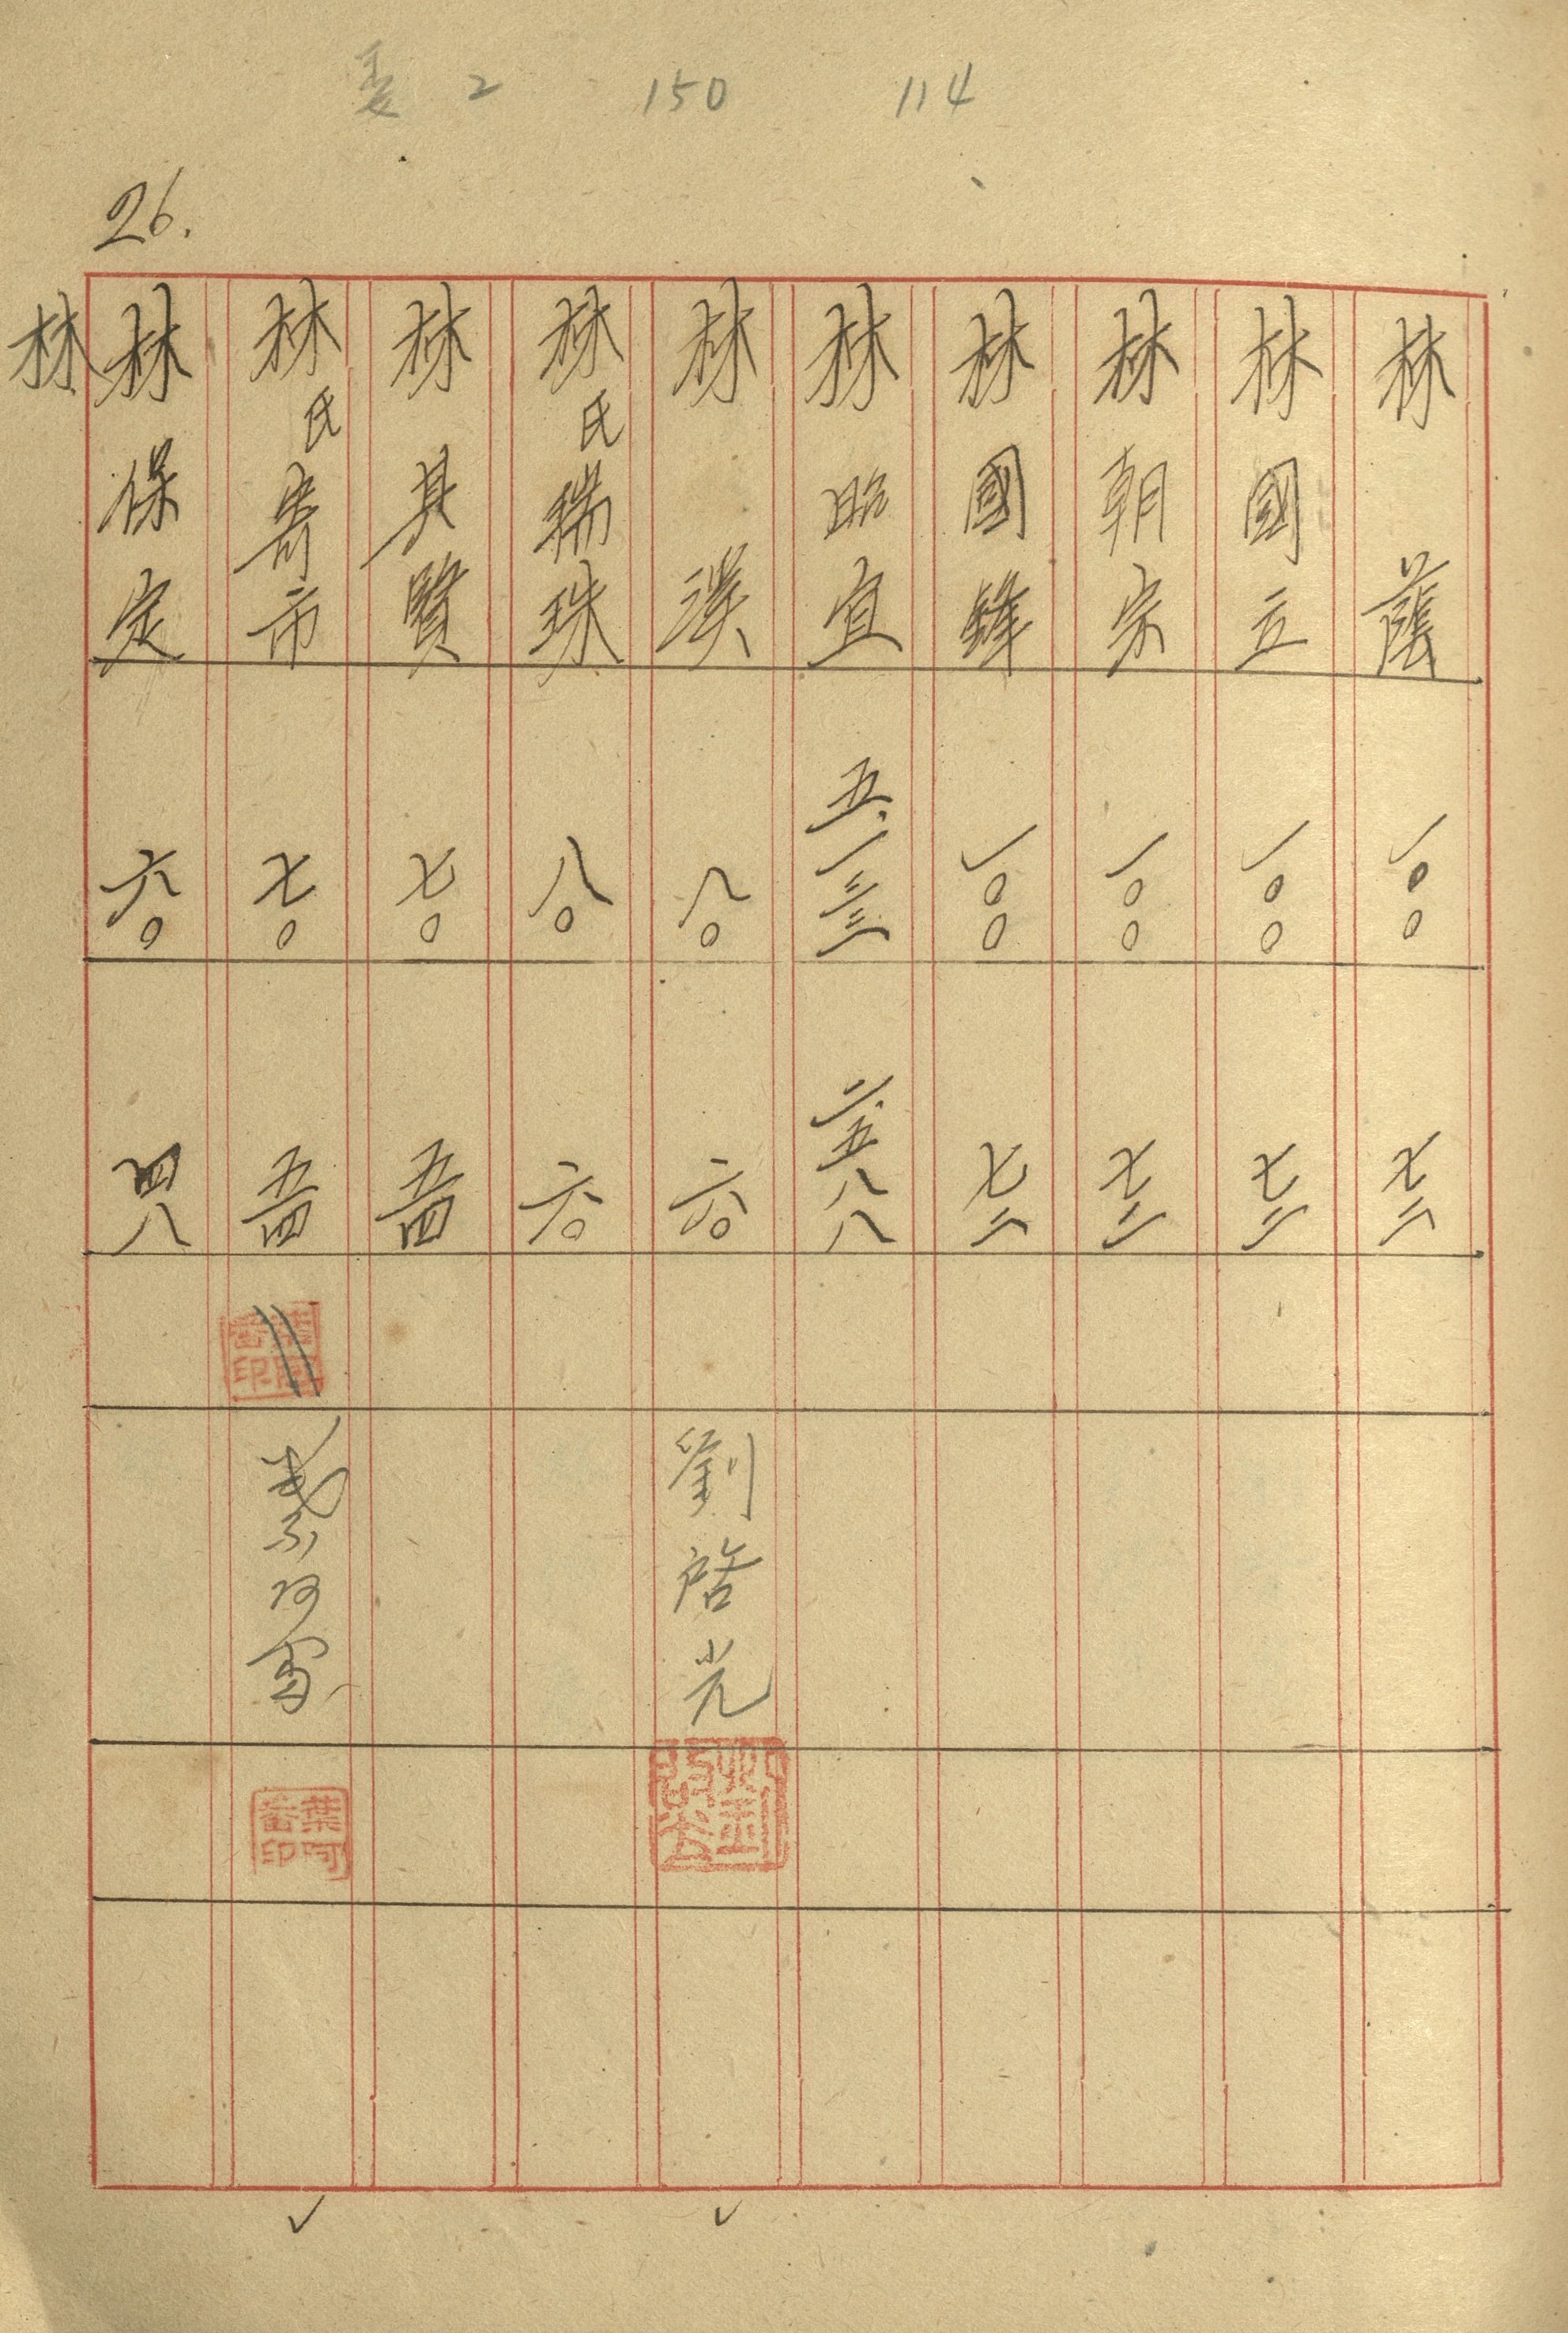 委 2 150 114
26.
林 蔭 一〇〇 七二
林國立 一〇〇 七二
林朝宗 一〇〇 七二
林國鋒 一〇〇 七二
林昭宜 五、一三三 二、五八八
林 漢 八〇 六〇 劉啓光
林氏瑞珠 八〇 六〇
林其賢 七〇 五四
林氏寄市 七〇 五四 葉阿畨印 葉阿畨印
林保定 六〇 四八
林